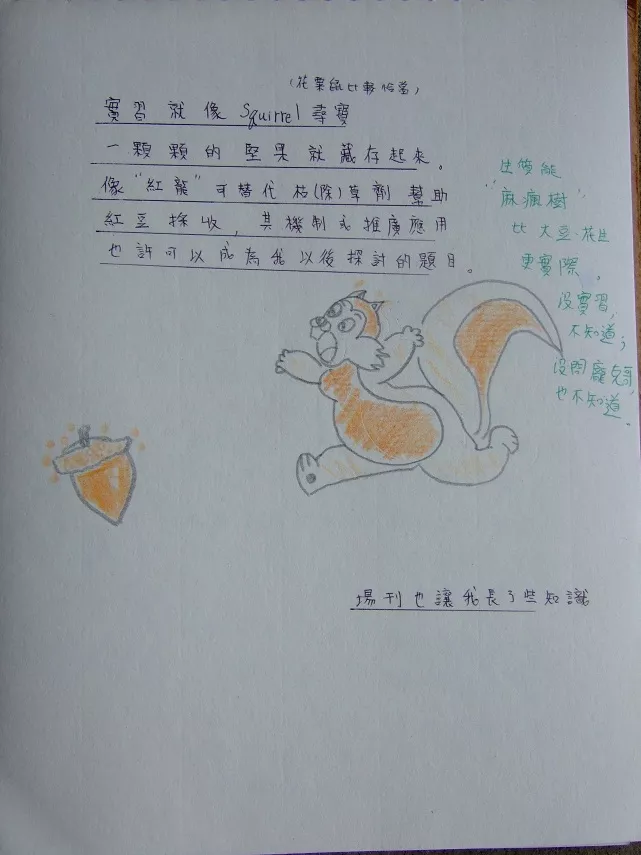 (花栗鼠比較恰當)
實習就像Squirrel尋寶
一顆顆的堅果就藏存起來。
像"紅龍"可替代枯(除)草劑幫助
紅豆採收,其機制或推廣應用
也許可以成為我以後探討的題目。
生質能
"麻瘋樹"
比大豆、花生
更實際。
沒實習,
不知道;
沒問龐兒哥,
也不知道.
場刊也讓我長了些知識